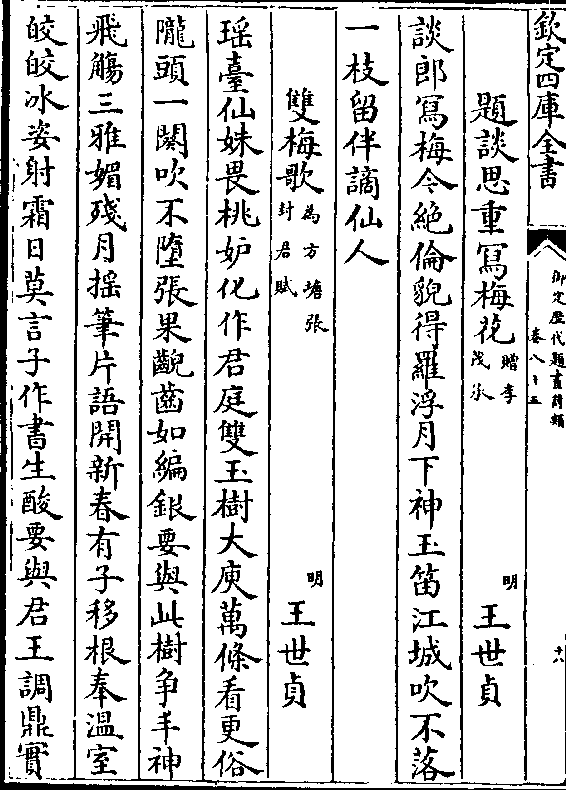 欽定四庫全書
御定歷代題畫詩類
卷八十五
十八
題談思重寫梅花贈李茂承 明 王世貞
談郎冩梅今絶倫貌得羅浮月下神玉笛江城吹不落
一枝留伴謫仙人
雙梅歌為方塘張封君賦 明 王世貞
瑶臺仙姝畏桃妒化作君庭雙玉樹大庾萬條看更俗
隴頭一闋吹不墮張果齯齒如編銀要與此樹争丰神
飛觴三雅媚殘月揺筆片語開新春有子移根奉溫室
皎皎冰姿射霜日莫言子作書生酸要與君王調鼎實